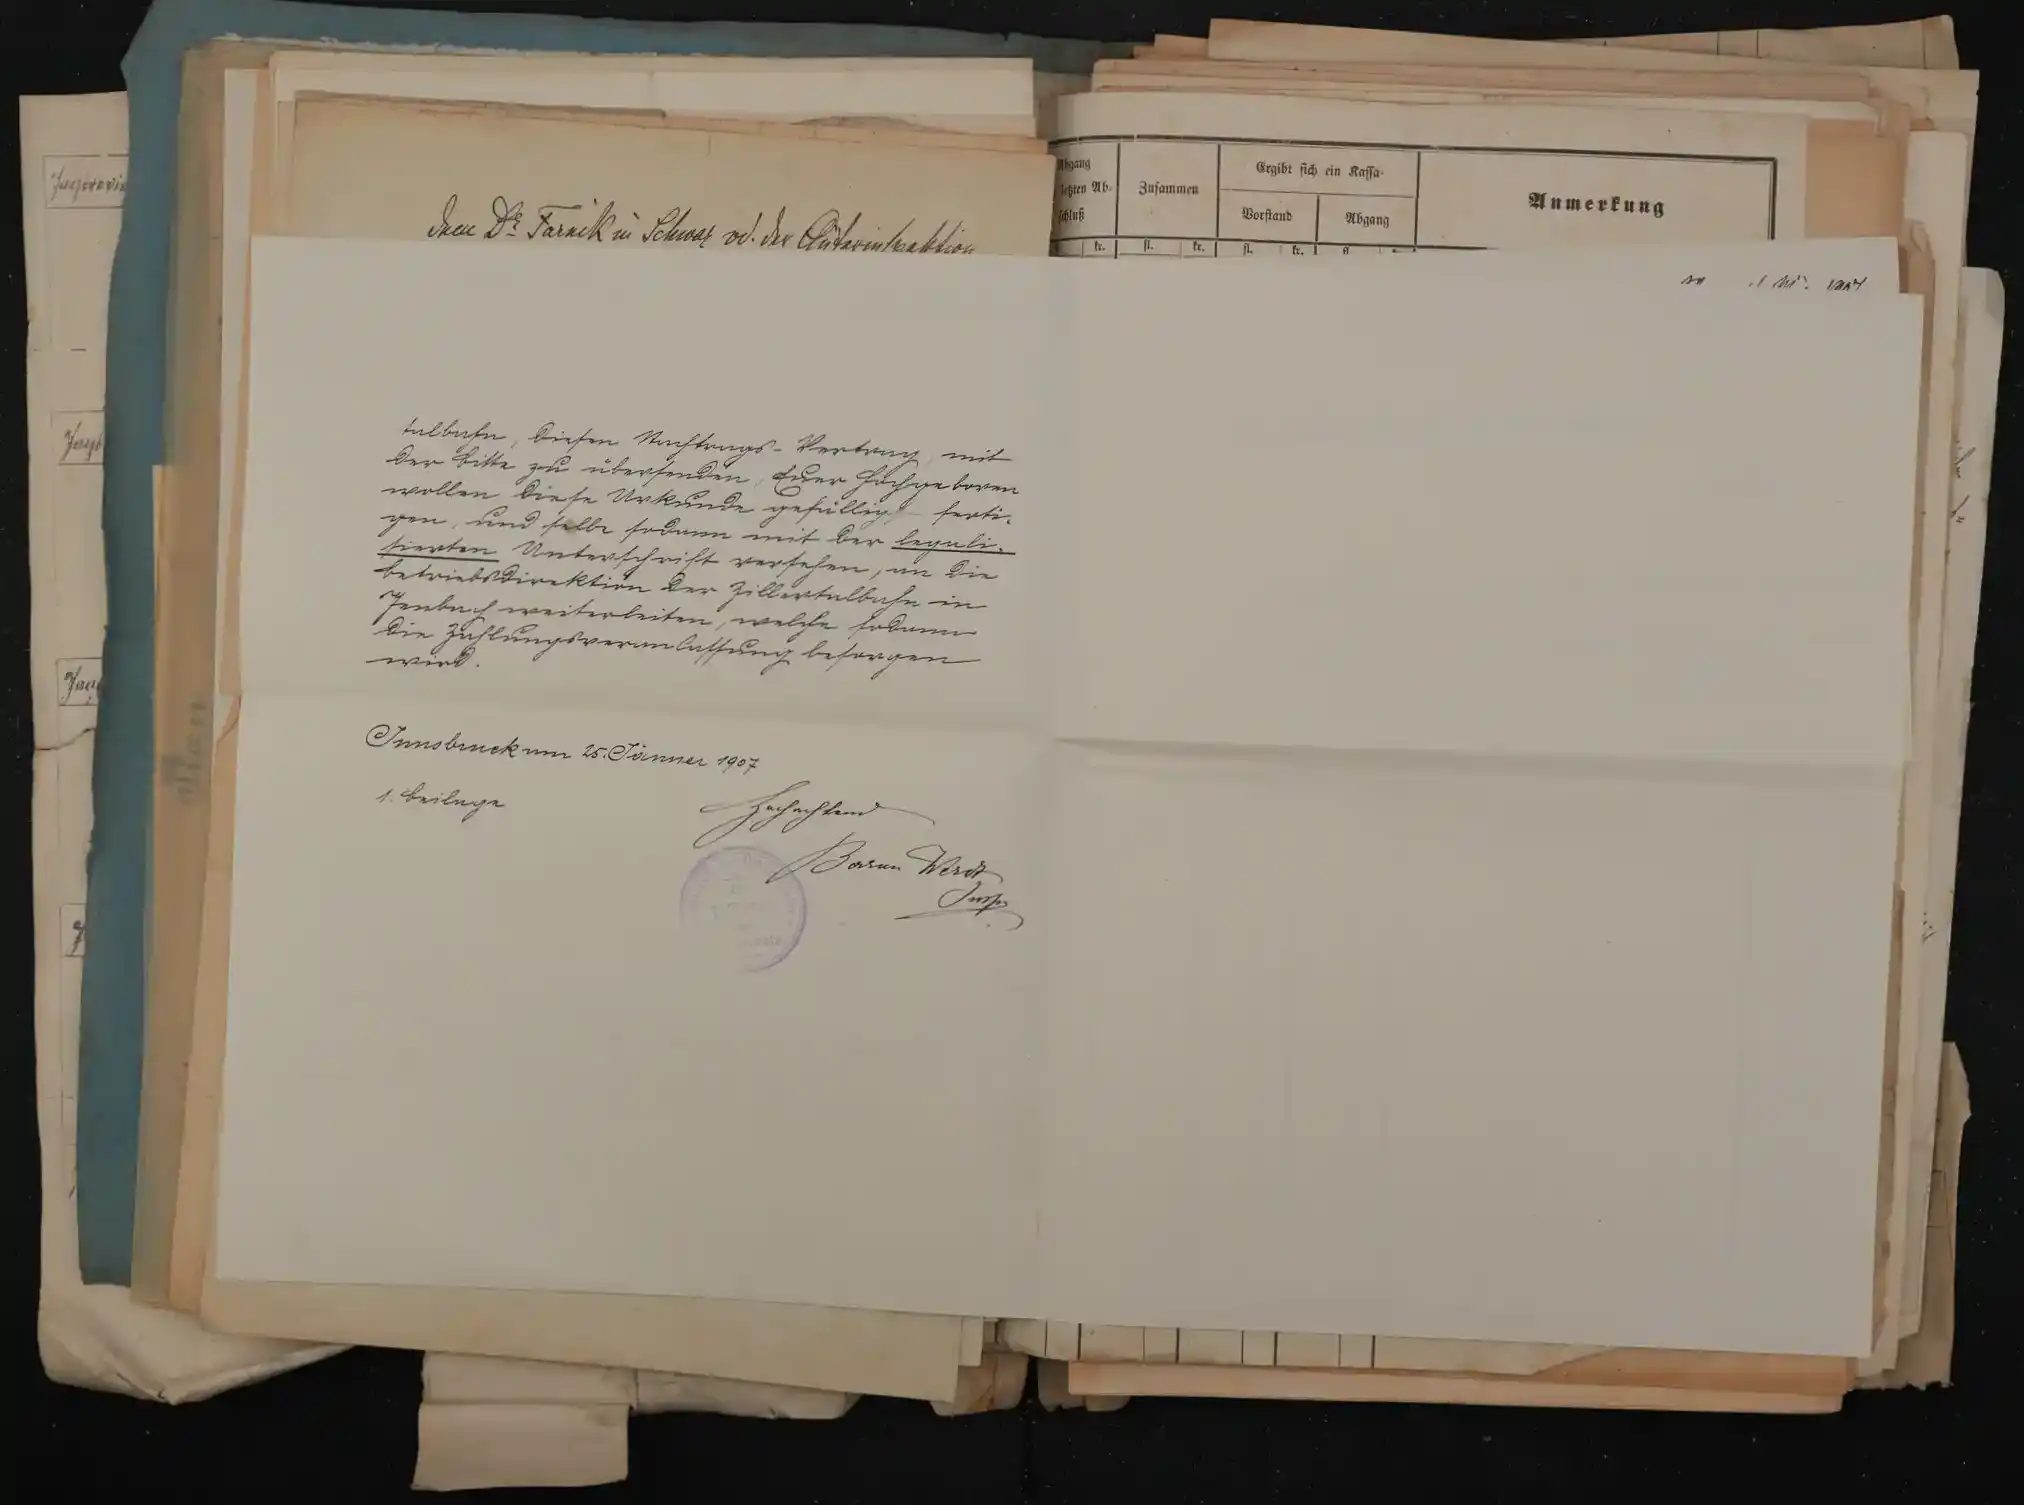 dem Dr. Farnik in Schwaz od. der
Abgang
letzten Ab-
schluß
Zusammen
Ergibt sich ein Kassa-
Vorstand
Abgang
Anmerkung
kr. fl. kr. fl. kr. fl.
talbahn, diesen Nachtrags-Vertrag, mit
der Bitte zu übersenden, Euer Hochgeboren
wollen diese Urkunde gefälligst ferti-
gen, und selbe sodann mit der legali-
sierten Unterschrift versehen, an die
Betriebsdirektion der Zillertalbahn in
Jenbach weiterleiten, welche sodann
die Zahlungsveranlassung besorgen
wird.
Innsbruck am 25. Jänner 1907
1. Beilage
Hochachtend
Baron Werdt
Insp.